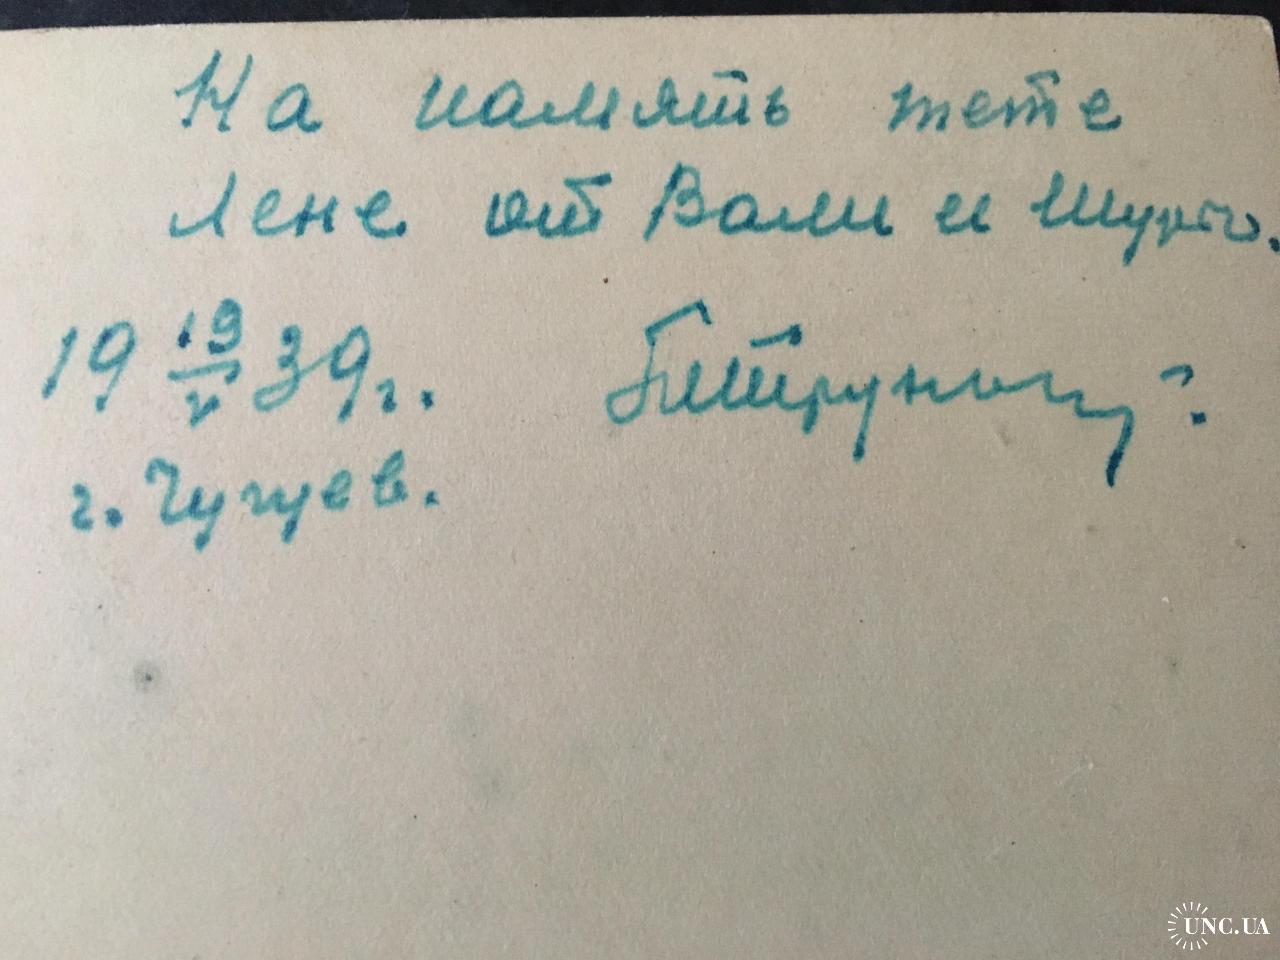 На память тете
Лене от Вали и Шуры.
19 19/V 39 г.
г. Чугуев.
UNC.UA